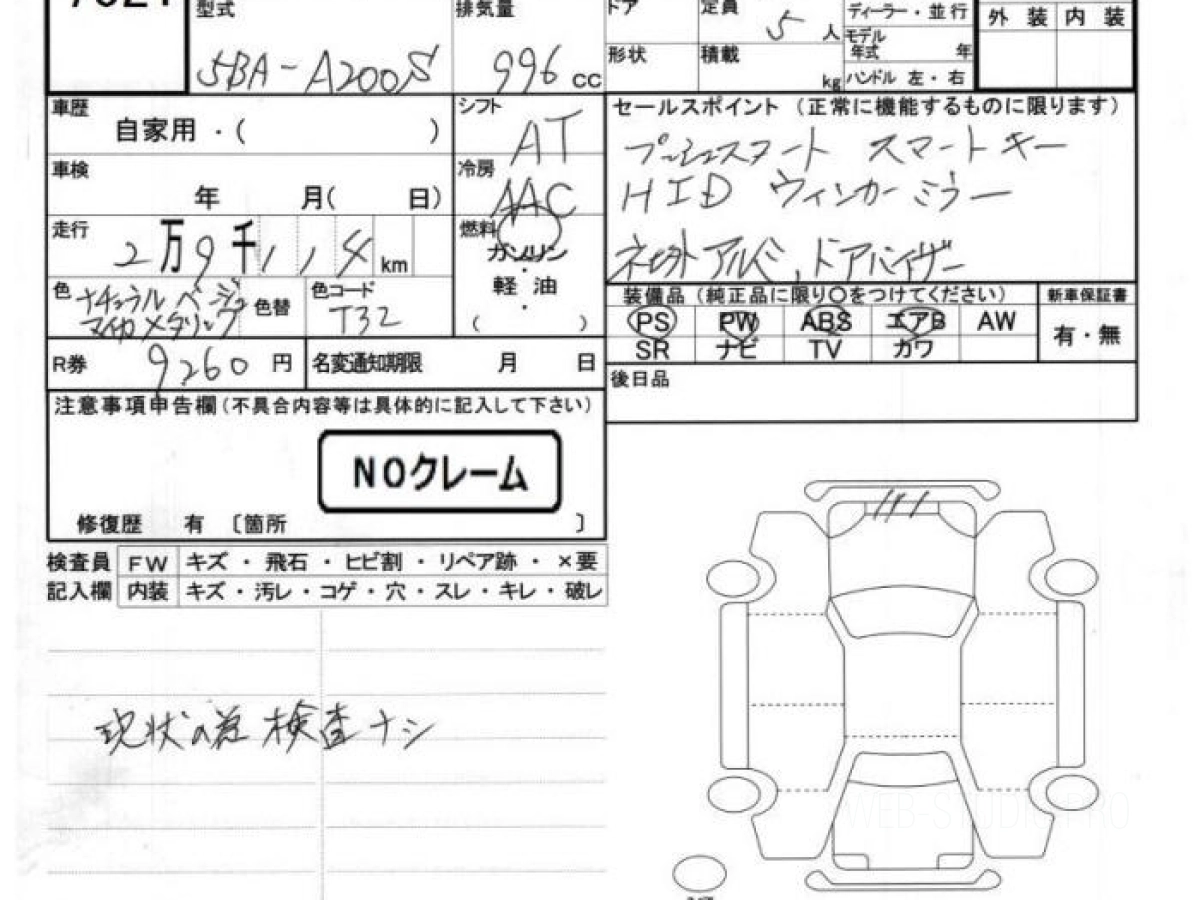 型式
5BA-A200S
排気量
996 cc
ドア
定員
5 人
形状
積載
kg
ディーラー・並行
モデル
年式 年
ハンドル 左・右
外装 内装
車歴
自家用・( )
シフト
AT
車検
年 月( 日)
冷房
AAC
走行
2万9千114 km
燃料
ガソリン
・
軽油
・
( )
色
ナチュラル ベージュ
マイカメタリック
色替
色コード
T32
R券 9260 円
名変通知期限 月 日
セールスポイント (正常に機能するものに限ります)
プッシュスタート スマートキー
HID ウィンカーミラー
アルミ、ドアバイザー
装備品(純正品に限り○をつけてください)
新車保証書
PS PW ABS エアB AW
有・無
SR ナビ TV カワ
後日品
注意事項申告欄(不具合内容等は具体的に記入して下さい)
NOクレーム
修復歴 有 〔箇所 〕
検査員 FW キズ・飛石・ヒビ割・リペア跡・×要
記入欄 内装 キズ・汚レ・コゲ・穴・スレ・キレ・破レ
現状の為 検査ナシ
WEB-STUDIO.PRO